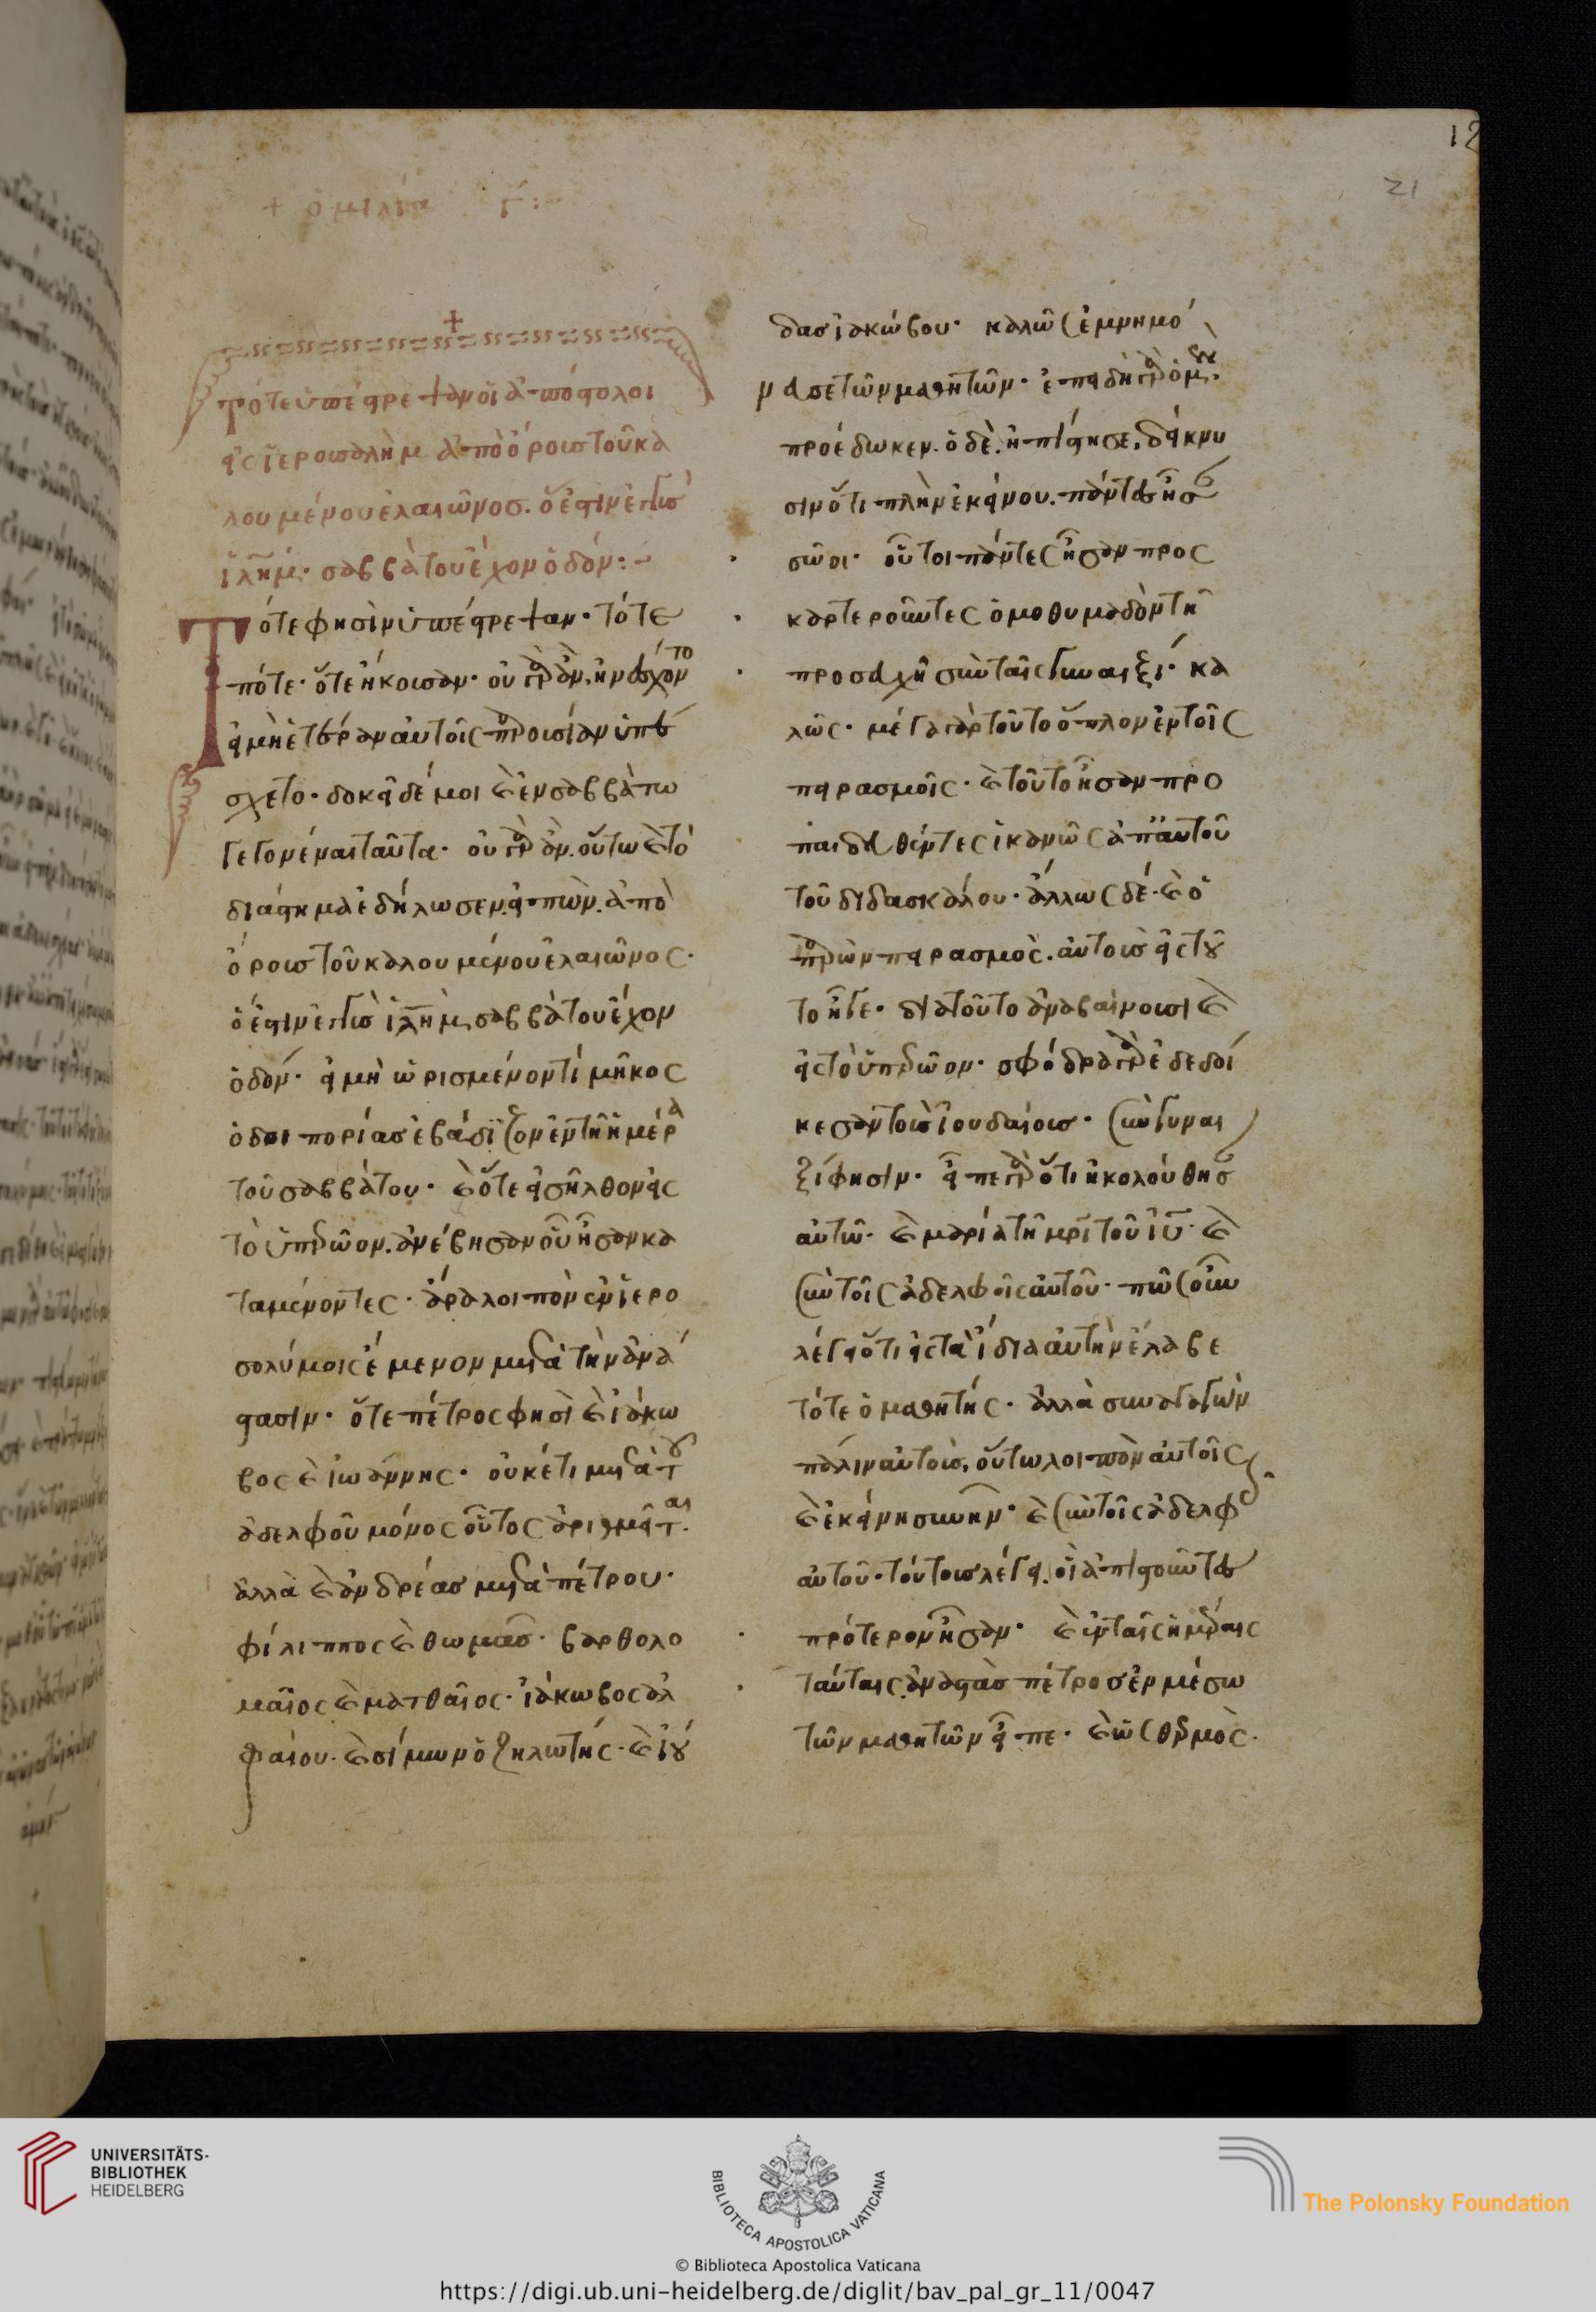 12
21
+ ὁμιλία γ´:~
Τότε ὑπέστρεψαν οἱ ἀπόστολοι
εἰς ἱερουσαλὴμ ἀπὸ ὄρους τοῦ κα
λουμένου ἐλαιῶνος. ὅ ἐστιν ἐγγὺς
ἱλημ. σαββάτου ἔχον ὁδόν:~
Τότε φησὶν ὑπέστρεψαν· τότε
πότε· ὅτε ἤκουσαν· οὐ γὰρ ἂν, ἠνέσχοντο
εἰ μὴ ἑτέραν αὐτοῖς παρουσίαν ὑπέ
σχετο· δοκεῖ δέ μοι καὶ ἐν σαββάτω
γεγονέναι ταῦτα· οὐ γὰρ ἂν. οὕτω καὶ τὸ
διάστημα ἐδήλωσεν. εἰπὼν. ἀπὸ
ὄρους τοῦ καλουμένου ἐλαιῶνος·
ὅ ἐστιν ἐγγὺς ἱλημ, σαββάτου ἔχον
ὁδόν· εἰ μὴ ὡρισμένον τί μῆκος
ὁδοιπορίας ἐβάδιζον ἐν τῆ ἡμέρα
τοῦ σαββάτου· καὶ ὅτε εἰσῆλθον εἰς
τὸ ὑπερῶον. ἀνέβησαν οὗ ἦσαν κα
ταμένοντες· ἄρα λοιπὸν ἐν ἱερο
σολύμοις ἔμενον μετὰ τὴν ἀνά
στασιν· ὅτε πέτρος φησὶ καὶ ἰάκω
βος καὶ ἰωάννης· οὐκέτι μετὰ τοῦ
ἀδελφοῦ μόνος οὗτος ἀριθμεῖται·
ἀλλὰ καὶ ἀνδρέας μετὰ πέτρου·
φίλιππος καὶ θωμᾶς· βαρθολο
μαῖος καὶ ματθαῖος· ἰάκωβος ἀλ
φαίου· καὶ σίμων ὁ ζηλωτής· καὶ ἰού
δας ἰακώβου· καλῶς ἐμνημό
νευσε τῶν μαθητῶν· ἐπειδὴ γὰρ ὁ μὲν
προέδωκεν. ὁ δὲ. ἠπίστησε, δείκνυ
σιν ὅτι πλὴν ἐκείνου. πάντες ἦσαν
σῶοι· οὗτοι πάντες ἦσαν προς
καρτεροῦντες ὁμοθυμαδὸν τῆ
προσευχῆ σὺν ταῖς γυναιξί· κα
λῶς· μέγα γὰρ τοῦτο ὅπλον ἐν τοῖς
πειρασμοῖς· καὶ τοῦτο ἦσαν προ
παιδευθέντες ἱκανῶς ἀπ αὐτοῦ
τοῦ διδασκάλου· ἄλλως δέ· καὶ ὁ
παρὼν πειρασμὸς. αὐτοὺς εἰς τοῦ
το ἦγε· διὰ τοῦτο ἀναβαίνουσι καὶ
εἰς τὸ ὑπερῶον· σφόδρα γὰρ ἐδεδοί
κεσαν τοὺς ἰουδαίους· σὺν γυναι
ξί φησιν· εἶπε γὰρ ὅτι ἠκολούθησαν
αὐτῶ· καὶ μαρία τῆ μρὶ τοῦ ἰυ· καὶ
σὺν τοῖς ἀδελφοῖς αὐτοῦ· πῶς οὖν
λέγει ὅτι εἰς τὰ ἴδια αὐτὴν ἔλαβε
τότε ὁ μαθητής· ἀλλὰ συναγαγὼν
πάλιν αὐτοὺς, οὕτω λοιπὸν αὐτοῖς
καὶ ἐκείνη συνῆν· καὶ σὺν τοῖς ἀδελφοῖς
αὐτοῦ· τούτους λέγει. οἳ ἀπιστοῦντες
πρότερον ἦσαν· καὶ ἐν ταῖς ἡμέραις
ταύταις ἀναστὰς πέτρος ἐν μέσω
τῶν μαθητῶν εἶπε· καὶ ὡς θερμὸς·
UNIVERSITÄTS-
BIBLIOTHEK
HEIDELBERG
BIBLIOTECA APOSTOLICA VATICANA
© Biblioteca Apostolica Vaticana
The Polonsky Foundation
https://digi.ub.uni-heidelberg.de/diglit/bav_pal_gr_11/0047